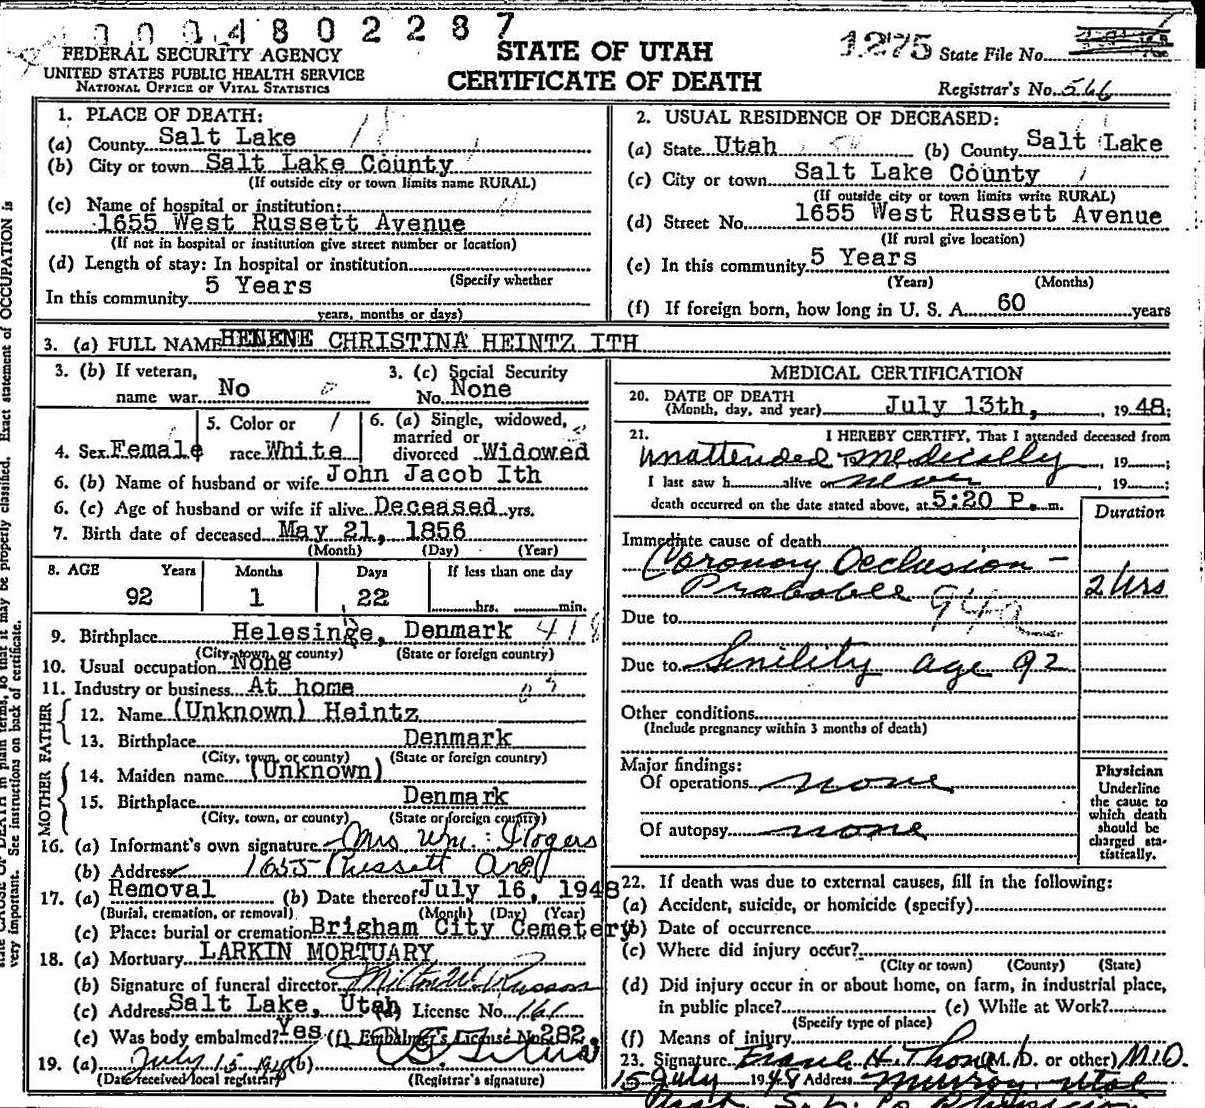 0004802287
FEDERAL SECURITY AGENCY
UNITED STATES PUBLIC HEALTH SERVICE
NATIONAL OFFICE OF VITAL STATISTICS
STATE OF UTAH
CERTIFICATE OF DEATH
1275 State File No.
Registrar's No. 566
1. PLACE OF DEATH:
(a) County Salt Lake 18
(b) City or town Salt Lake County
(If outside city or town limits name RURAL)
(c) Name of hospital or institution:
1655 West Russett Avenue
(If not in hospital or institution give street number or location)
(d) Length of stay: In hospital or institution
(Specify whether
In this community 5 Years
years, months or days)
2. USUAL RESIDENCE OF DECEASED:
(a) State Utah (b) County Salt Lake
(c) City or town Salt Lake County
(If outside city or town limits write RURAL)
(d) Street No. 1655 West Russett Avenue
(If rural give location)
(e) In this community 5 Years
(Years) (Months)
(f) If foreign born, how long in U. S. A. 60 years
3. (a) FULL NAME HELENE CHRISTINA HEINTZ ITH
3. (b) If veteran,
name war No
3. (c) Social Security
No. None
4. Sex Female
5. Color or
race White
6. (a) Single, widowed,
married or
divorced Widowed
6. (b) Name of husband or wife John Jacob Ith
6. (c) Age of husband or wife if alive Deceased yrs.
7. Birth date of deceased May 21, 1856
(Month) (Day) (Year)
8. AGE Years Months Days If less than one day
92 1 22 hrs. min.
9. Birthplace Helesinge, Denmark 418
(City, town, or county) (State or foreign country)
10. Usual occupation None
11. Industry or business At home
FATHER
12. Name (Unknown) Heintz
13. Birthplace Denmark
(City, town, or county) (State or foreign country)
MOTHER
14. Maiden name (Unknown)
15. Birthplace Denmark
(City, town, or county) (State or foreign country)
16. (a) Informant's own signature Mrs Wm.
(b) Address 1655 Russett Ave
17. (a) Removal (b) Date thereof July 16, 1948
(Burial, cremation, or removal) (Month) (Day) (Year)
(c) Place: burial or cremation Brigham City Cemetery
18. (a) Mortuary LARKIN MORTUARY
(b) Signature of funeral director
(c) Address Salt Lake, Utah (d) License No. 161
(e) Was body embalmed? Yes (f) Embalmer's License No. 282
19. (a) July 15 1948 (b)
(Date received local registrar) (Registrar's signature)
MEDICAL CERTIFICATION
20. DATE OF DEATH
(Month, day, and year) July 13th, 1948;
21. I HEREBY CERTIFY, That I attended deceased from
unattended medically, 19 ;
I last saw h alive on never, 19 ;
death occurred on the date stated above, at 5:20 P. m.
Duration
Immediate cause of death
Coronary Occlusion -
Probable 94a 2 hrs
Due to
Due to Senility age 92
Other conditions
(Include pregnancy within 3 months of death)
Major findings:
Of operations none
Of autopsy none
Physician
Underline
the cause to
which death
should be
charged sta-
tistically.
22. If death was due to external causes, fill in the following:
(a) Accident, suicide, or homicide (specify)
(b) Date of occurrence
(c) Where did injury occur?
(City or town) (County) (State)
(d) Did injury occur in or about home, on farm, in industrial place,
in public place? (e) While at Work?
(Specify type of place)
(f) Means of injury
23. Signature Frank H. (M. D. or other) M.D.
15 July 1948 Address Murray, Utah
state CAUSE OF DEATH in plain terms, so that it may be properly classified. Exact statement of OCCUPATION is
very important. See instructions on back of certificate.